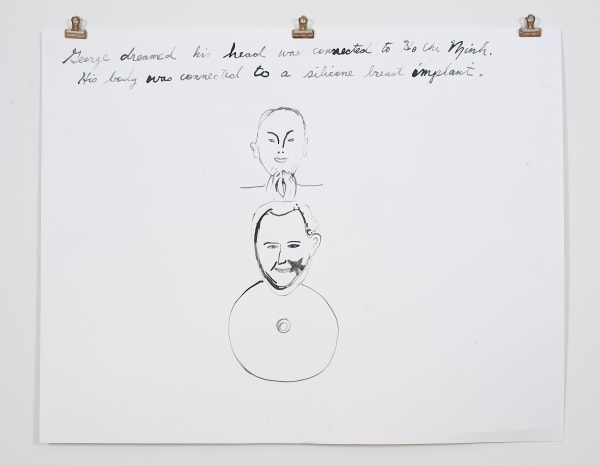 George dreamed his head was connected to Ho Chi Minh.
His body was connected to a silicone breast implant.